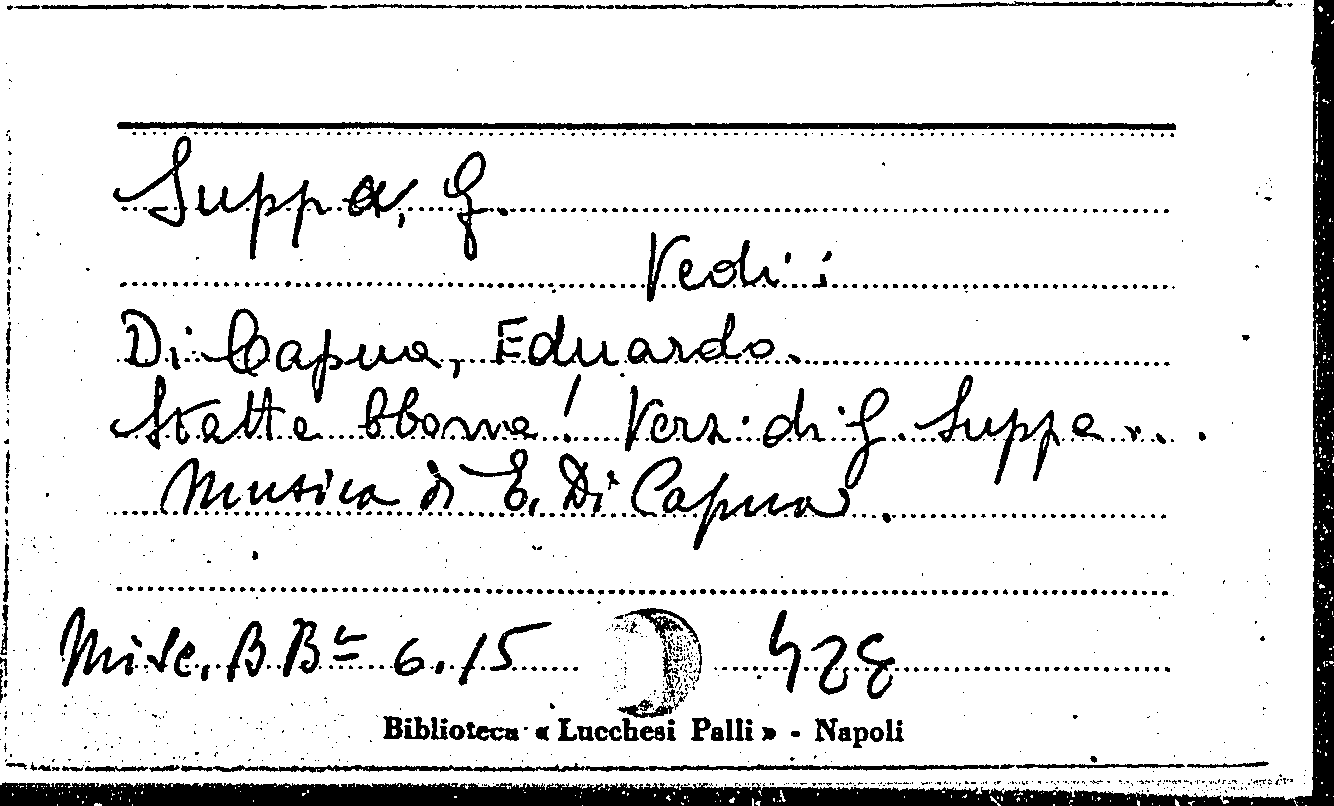 Suppa, G.
Vedi:
Di Capua, Eduardo.
Statte bbona! Versi di G. Suppa...
Musica di E. Di Capua.
Misc. B B 6.15 428
Biblioteca « Lucchesi Palli » - Napoli